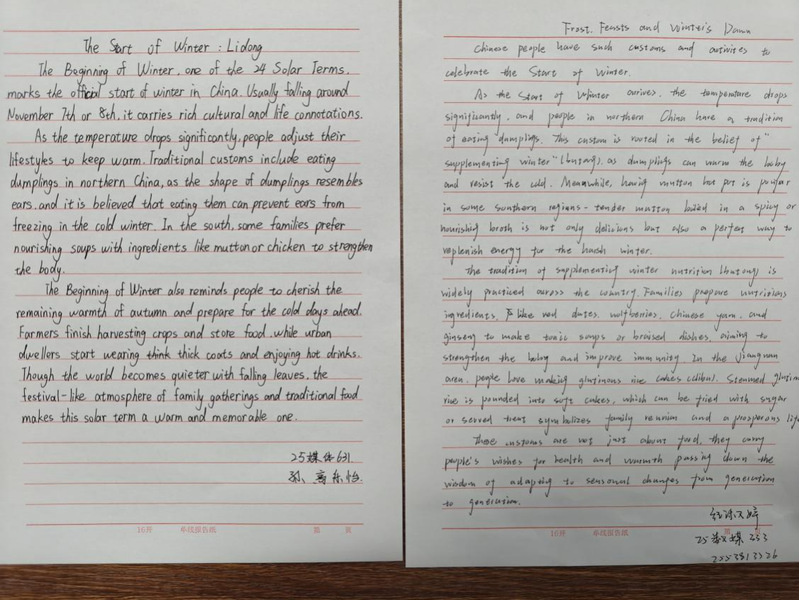 The Start of Winter : Lidong
The Beginning of Winter, one of the 24 Solar Terms,
marks the official start of winter in China. Usually falling around
November 7th or 8th, it carries rich cultural and life connotations.
As the temperature drops significantly, people adjust their
lifestyles to keep warm. Traditional customs include eating
dumplings in northern China, as the shape of dumplings resembles
ears, and it is believed that eating them can prevent ears from
freezing in the cold winter. In the south, some families prefer
nourishing soups with ingredients like mutton or chicken to strengthen
the body.
The Beginning of Winter also reminds people to cherish the
remaining warmth of autumn and prepare for the cold days ahead.
Farmers finish harvesting crops and store food, while urban
dwellers start wearing think thick coats and enjoying hot drinks.
Though the world becomes quieter with falling leaves, the
festival-like atmosphere of family gatherings and traditional food
makes this solar term a warm and memorable one.
25媒体631
孙 乐怡
16开 单线报告纸 第 页
Frost, Feasts and Winter's Dawn
Chinese people have such customs and activites to
celebrate the Start of Winter.
As the Start of Winter arrives, the temperature drops
significantly, and people in northern China have a tradition
of eating dumplings. This custom is rooted in the belief of "
supplementing winter" (butong), as dumplings can warm the body
and resist the cold. Meanwhile, having mutton hot pot is popular
in some southern regions - tender mutton boiled in a spicy or
nourishing broth is not only delicious but also a perfect way to
replenish energy for the harsh winter.
The tradition of supplementing winter nutrition (butong) is
widely practiced across the country. Families prepare nutritious
ingredients, like red dates, wolfberries, Chinese yam, and
ginseng to make tonic soups or braised dishes, aiming to
strengthen the body and improve immunity. In the Jiangnan
area, people love making glutinous rice cakes. Steamed glutin
rice is pounded into soft cakes, which can be fried with sugar
or served treat symbolizes family reunion and a prosperous life
These customs are not just about food, they carry
people's wishes for health and warmth passing down the
wisdom of adapting to seasonal changes from generation
to generation.
16开 单线报告纸 第 页
25 媒 253